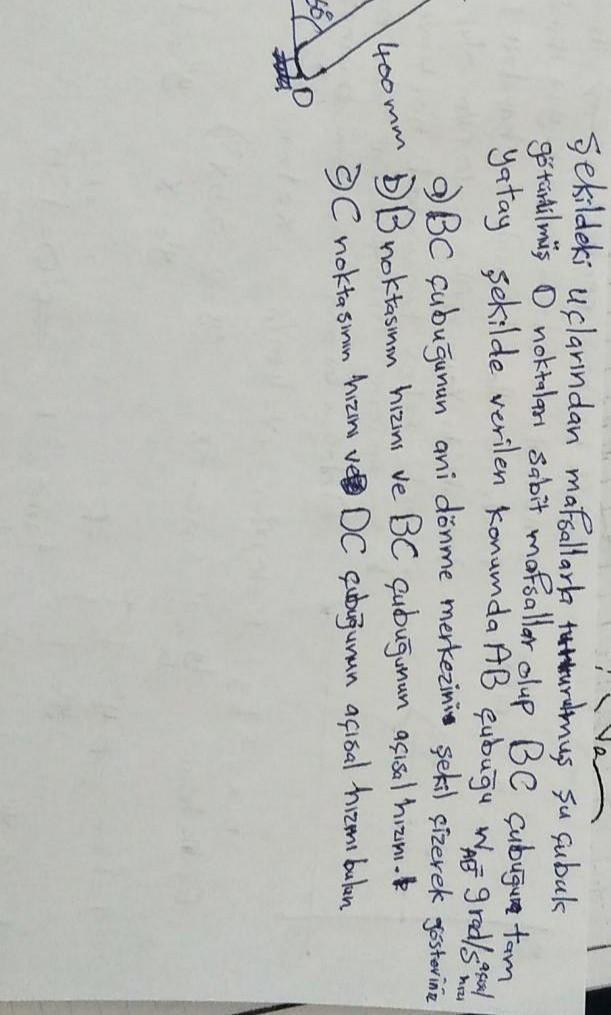 Şekildeki uçlarından mafsallarla tutturulmuş şu çubuk
götürülmüş D noktaları sabit mafsallar olup BC çubuğu tam
yatay şekilde verilen konumda AB çubuğu W_AB = 9 rad/s açısal hızı
a) BC çubuğunun ani dönme merkezini şekil çizerek gösteriniz
b) B noktasının hızını ve BC çubuğunun açısal hızını.
c) C noktasının hızını ve DC çubuğunun açısal hızını bulun
400mm
D